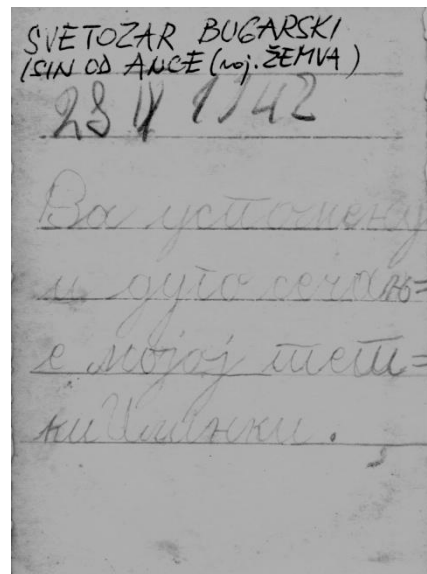 SVETOZAR BUGARSKI
(SIN OD ANCE (noj. ŽEMVA)
1942
За успомену
и дуго сећањ=
е мојој тет=
ки Илинки.